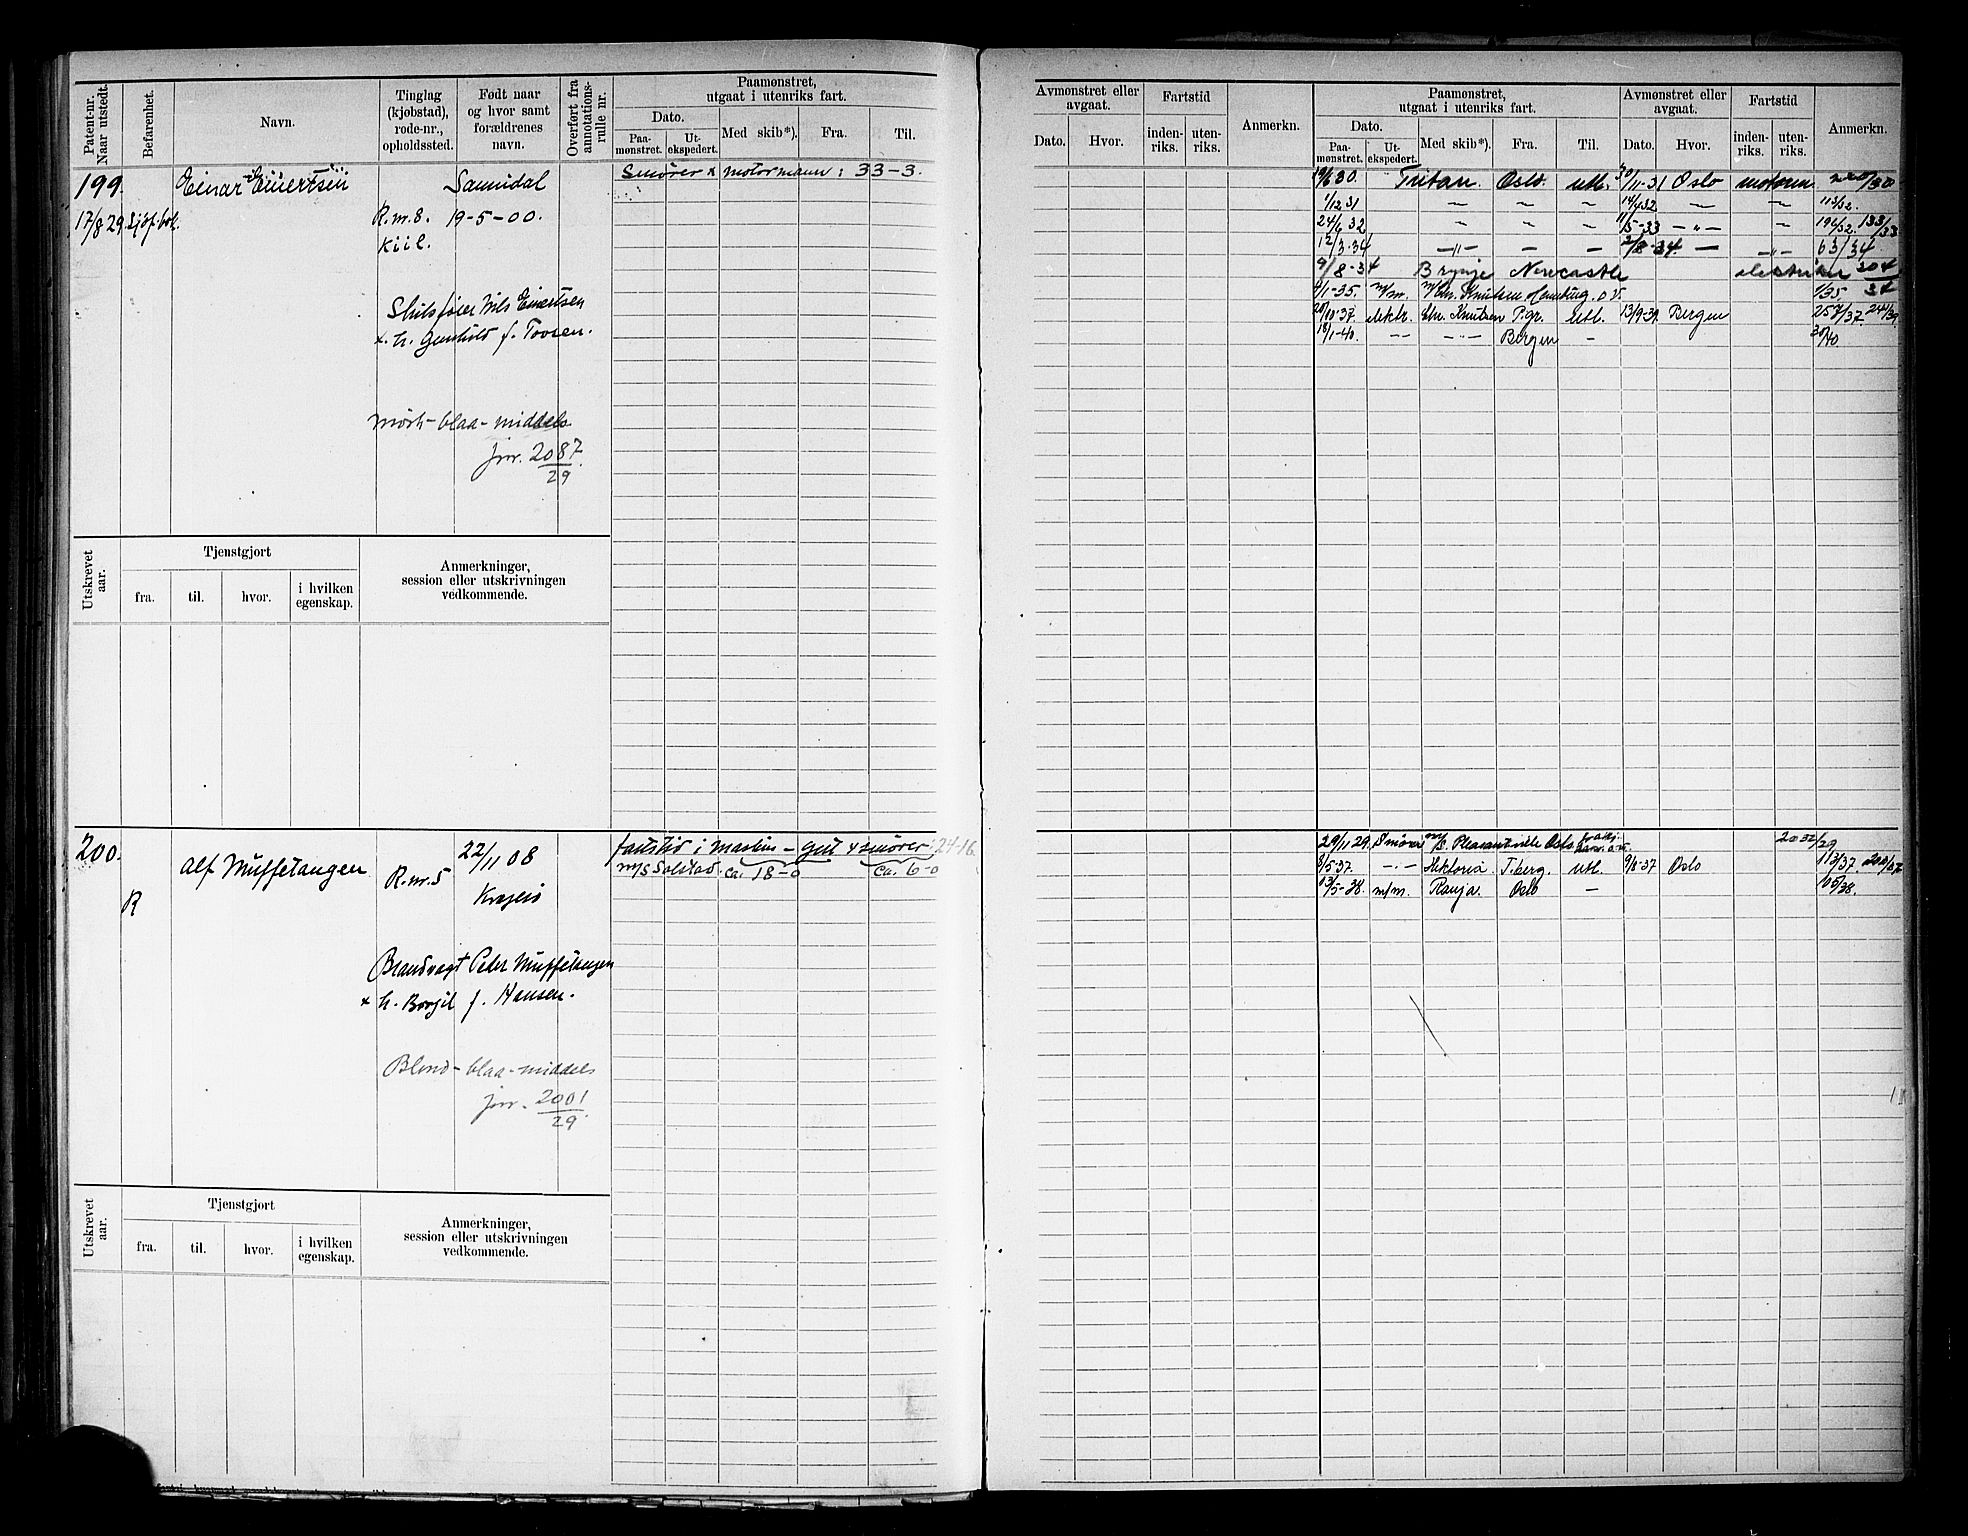 Patent-nr. Naar utstedt.
Befarenhet.
Navn.
Tinglag (kjøbstad), rode-nr., opholdssted.
Født naar og hvor samt forældrenes navn.
Overført fra annotations-rulle nr.
Paamønstret, utgaat i utenriks fart.
Dato.
Paa-mønstret.
Ut-ekspedert.
Med skib*).
Fra.
Til.
199.
17/8 29.
Einar Eivertsen
Sannidal
R.m.8. 19-5-00.
Kiil.
Nils Eivertsen
Smører x motormann: 33-3.
Mørk-blaa-middels
jnr. 2087/29
Utskrevet aar.
Tjenstgjort
fra.
til.
hvor.
i hvilken egenskap.
Anmerkninger, session eller utskrivningen vedkommende.
200.
R
Alf Muffetangen
R.m.5
22/11 08
Kragerø
Brandvagt Peder Muffetangen
x h. Borgil f. Hansen.
Blond-blaa-middels
jnr. 2001/29
m/s Solstad. ca. 18-0 ca. 6-0
24-16
Utskrevet aar.
Tjenstgjort
fra.
til.
hvor.
i hvilken egenskap.
Anmerkninger, session eller utskrivningen vedkommende.
Avmønstret eller avgaat.
Dato.
Hvor.
Fartstid
inden-riks.
uten-riks.
Anmerkn.
Paamønstret, utgaat i utenriks fart.
Dato.
Paa-mønstret.
Ut-ekspedert.
Med skib*).
Fra.
Til.
Avmønstret eller avgaat.
Dato.
Hvor.
Fartstid
inden-riks.
uten-riks.
Anmerkn.
19/6 30. Tritan. Oslo. utl. 30/11-31 Oslo
1/12 31 — — — 14/4 32 — — 113/32.
24/6 32 — — — 11/5-33 — " — — 196/32. 133/33
12/3-34 — " — — — 2/8-34. — — " — 63/34
9/8-34 Brynje Newcastle 304/34
4/1-35. m/m. Knutsen Hamburg. 1/35.
20/10-37. elektr. Chr. Knutsen P.gr. utl. 13/9-39. Bergen 257/37. 241/39.
18/1-40. — — — " — Bergen — 30/40.
29/11 29. Smører m/s. Pleasantville Oslo 2032/29
8/5-37. — " — Hektoria T.berg. utl. 9/8-37 Oslo 113/37.
13/5-38. m/m. Ranja. Oslo — 105/38.